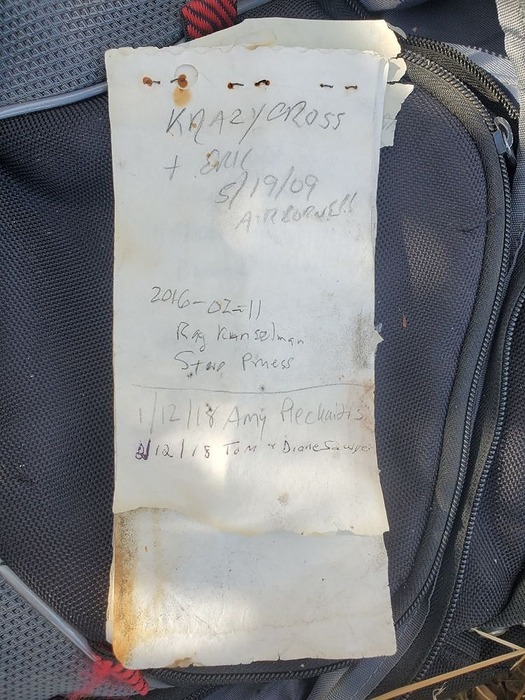 KRAZYCROSS
+ ERIC
5/19/09
AIRBORNE!!
2016-02-11
Ray Kunselman
Steve
1/12/18 Amy
2/12/18 Tom & Diane Sawyer